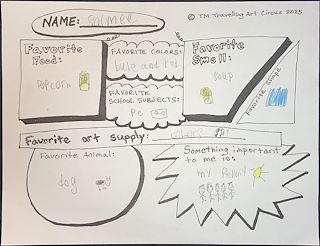 © TM Travelling Art Circus 2025
NAME: summer
Favorite Food:
popcorn
FAVORITE COLORS:
bule and red
FAVORITE SCHOOL SUBJECTS:
Pe
Favorite Smell:
soup
Favorite Shape
Favorite art supply: colors
Favorite Animal:
dog
Something important to me is:
my family